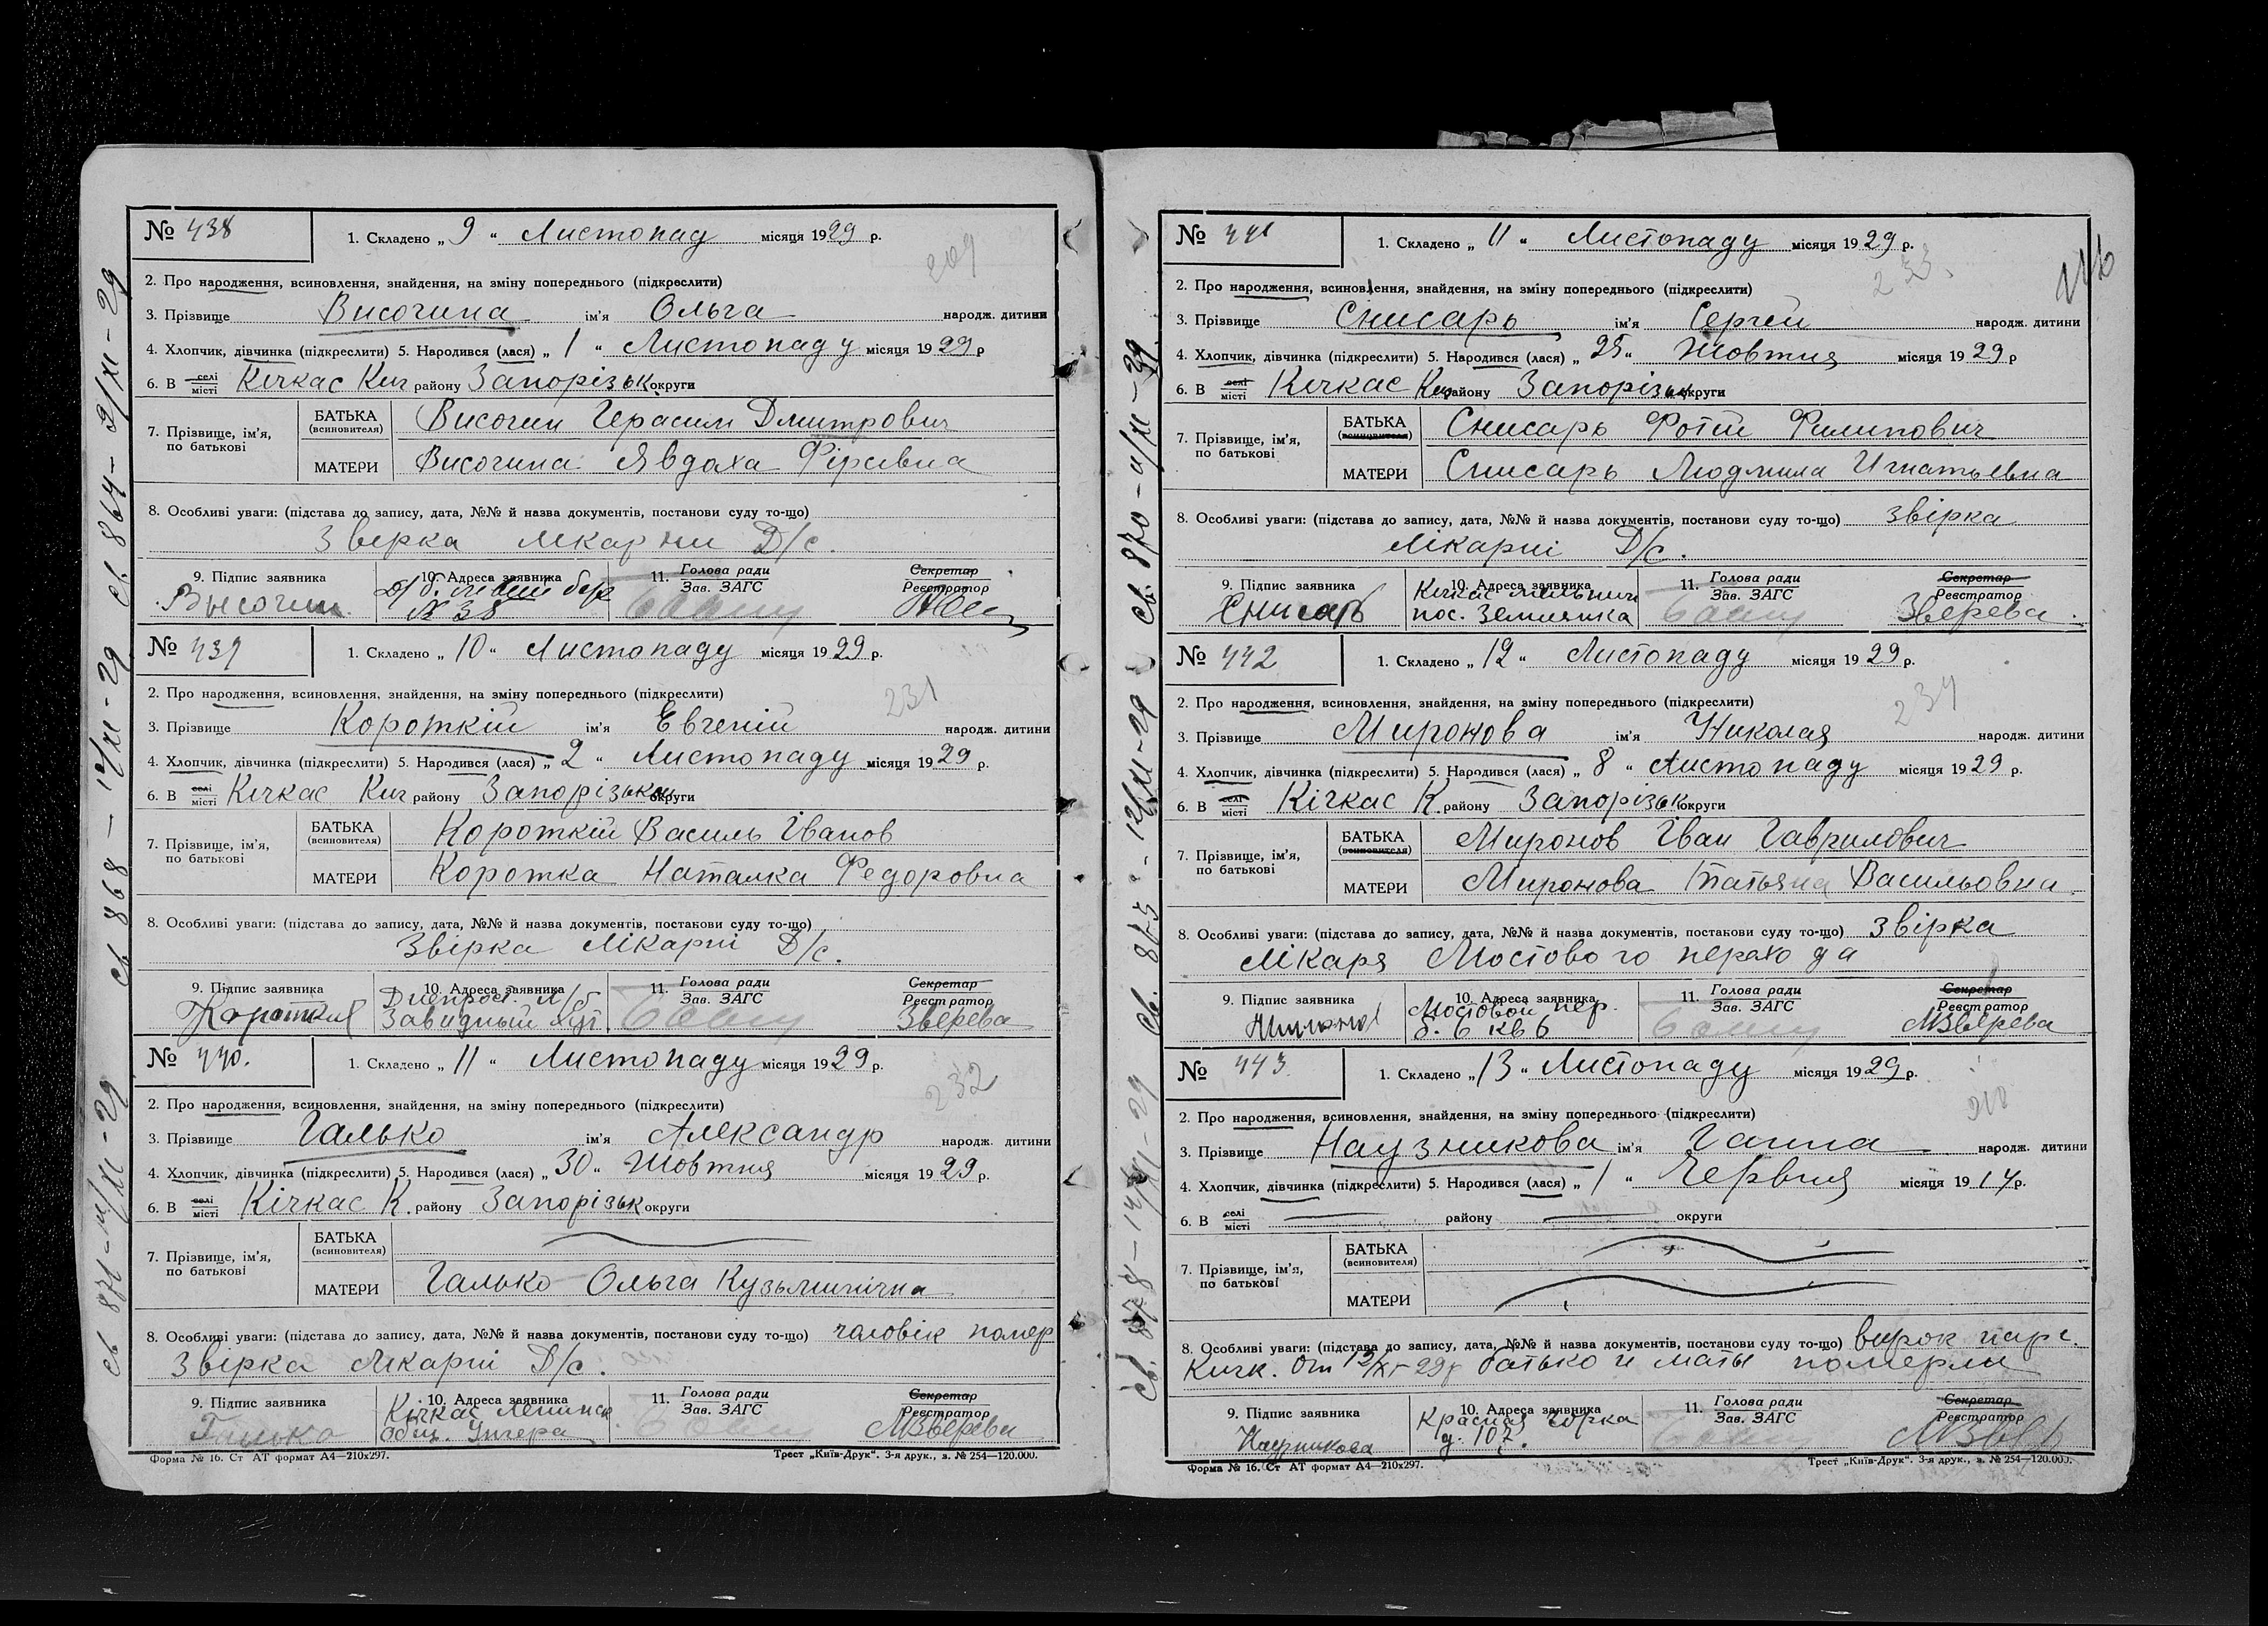 № 438
1. Складено „ 9 “ Листопад місяця 1929 р.
209
2. Про народження, всиновлення, знайдення, на зміну попереднього (підкреслити)
3. Прізвище Височина ім'я Ольга народж. дитини
4. Хлопчик, дівчинка (підкреслити) 5. Народився (лася) „ 1 “ Листопаду місяця 1929 р
6. В селі місті Кічкас Кич району Запорізьк округи
7. Прізвище, ім'я, по батькові
БАТЬКА (всиновителя) Височин Герасим Дмитрович
МАТЕРИ Височина Явдоха Фірсівна
8. Особливі уваги: (підстава до запису, дата, №№ й назва документів, постанови суду то-що)
Звірка лікарни Д/с.
9. Підпис заявника
10. Адреса заявника
11. Голова ради Зав. ЗАГС
Секретар Реєстратор
Высочин
№ 38
№ 439
1. Складено „ 10 “ Листопаду місяця 1929 р.
231
2. Про народження, всиновлення, знайдення, на зміну попереднього (підкреслити)
3. Прізвище Короткій ім'я Евгеній народж. дитини
4. Хлопчик, дівчинка (підкреслити) 5. Народився (лася) „ 2 “ Листопаду місяця 1929 р.
6. В селі місті Кічкас Кич району Запорізьк округи
7. Прізвище, ім'я, по батькові
БАТЬКА (всиновителя) Короткій Василь Іванов
МАТЕРИ Коротка Наталка Федоровна
8. Особливі уваги: (підстава до запису, дата, №№ й назва документів, постакови суду то-що)
Звірка лікарні Д/с.
9. Підпис заявника
10. Адреса заявника
11. Голова ради Зав. ЗАГС
Секретар Реєстратор
Короткий
Зверева
№ 440.
1. Складено „ 11 “ Листопаду місяця 1929 р.
232
2. Про народження, всиновлення, знайдення, на зміну попереднього (підкреслити)
3. Прізвище Галько ім'я Александр народж. дитини
4. Хлопчик, дівчинка (підкреслити) 5. Народився (лася) „ 30 “ Жовтня місяця 1929 р.
6. В селі місті Кічкас К. району Запорізьк округи
7. Прізвище, ім'я, по батькові
БАТЬКА (всиновителя)
МАТЕРИ Галько Ольга Кузьминічна
8. Особливі уваги: (підстава до запису, дата, №№ й назва документів, постанови суду то-що) чоловік помер
Звірка лікарні Д/с.
9. Підпис заявника
10. Адреса заявника
11. Голова ради Зав. ЗАГС
Секретар Реєстратор
Галько
Кічкас Ленинск
МЗверева
Форма № 16. Ст АТ формат А4—210х297.
Трест „Київ-Друк“. 3-я друк., з. № 254—120.000.
св 871-11/XI-29 св 868-11/XI-29 св. 864-9/XI-29
№ 441
1. Складено „ 11 “ Листопаду місяця 1929 р.
233.
2. Про народження, всиновлення, знайдення, на зміну попереднього (підкреслити)
3. Прізвище Снисарь ім'я Сергей народж. дитини
4. Хлопчик, дівчинка (підкреслити) 5. Народився (лася) „ 25 “ Жовтня місяця 1929 р
6. В селі місті Кічкас Кич району Запорізьк округи
7. Прізвище, ім'я, по батькові
БАТЬКА (всиновителя) Снисарь Фотій Филипович
МАТЕРИ Снисарь Людмила Игнатьевна
8. Особливі уваги: (підстава до запису, дата, №№ й назва документів, постанови суду то-що) звірка
лікарні Д/с.
9. Підпис заявника
10. Адреса заявника
11. Голова ради Зав. ЗАГС
Секретар Реєстратор
Снисарь
пос. Землянка
Зверева
№ 442
1. Складено „ 12 “ Листопаду місяця 1929 р.
234
2. Про народження, всиновлення, знайдення, на зміну попереднього (підкреслити)
3. Прізвище Миронова ім'я Николая народж. дитини
4. Хлопчик, дівчинка (підкреслити) 5. Народився (лася) „ 8 “ Листопаду місяця 1929 р.
6. В селі місті Кічкас К. району Запорізьк округи
7. Прізвище, ім'я, по батькові
БАТЬКА (всиновителя) Миронов Іван Гаврилович
МАТЕРИ Миронова Татьяна Васильовна
8. Особливі уваги: (підстава до запису, дата, №№ й назва документів, постакови суду то-що) звірка
лікаря Мостового перехода
9. Підпис заявника
10. Адреса заявника
11. Голова ради Зав. ЗАГС
Секретар Реєстратор
Мостовой пер.
б. 6 кв 6
МЗверева
№ 443
1. Складено „ 13 “ Листопаду місяця 1929 р.
2. Про народження, всиновлення, знайдення, на зміну попереднього (підкреслити)
3. Прізвище Наузникова ім'я Ганна народж. дитини
4. Хлопчик, дівчинка (підкреслити) 5. Народився (лася) „ 1 “ Червня місяця 1914 р.
6. В селі місті району округи
7. Прізвище, ім'я, по батькові
БАТЬКА (всиновителя)
МАТЕРИ
8. Особливі уваги: (підстава до запису, дата, №№ й назва документів, постанови суду то-що) вирок нарс.
Кичк. От 12/XI-29р батько и мать померли
9. Підпис заявника
10. Адреса заявника
11. Голова ради Зав. ЗАГС
Секретар Реєстратор
Наузникова
Красная Горка
д. 107.
Форма № 16. Ст АТ формат А4—210х297.
Трест „Київ-Друк“. 3-я друк., з. № 254—120.000.
св. 878-14/XI-29 св. 875-12/XI-29 св. 870-11/XI-29